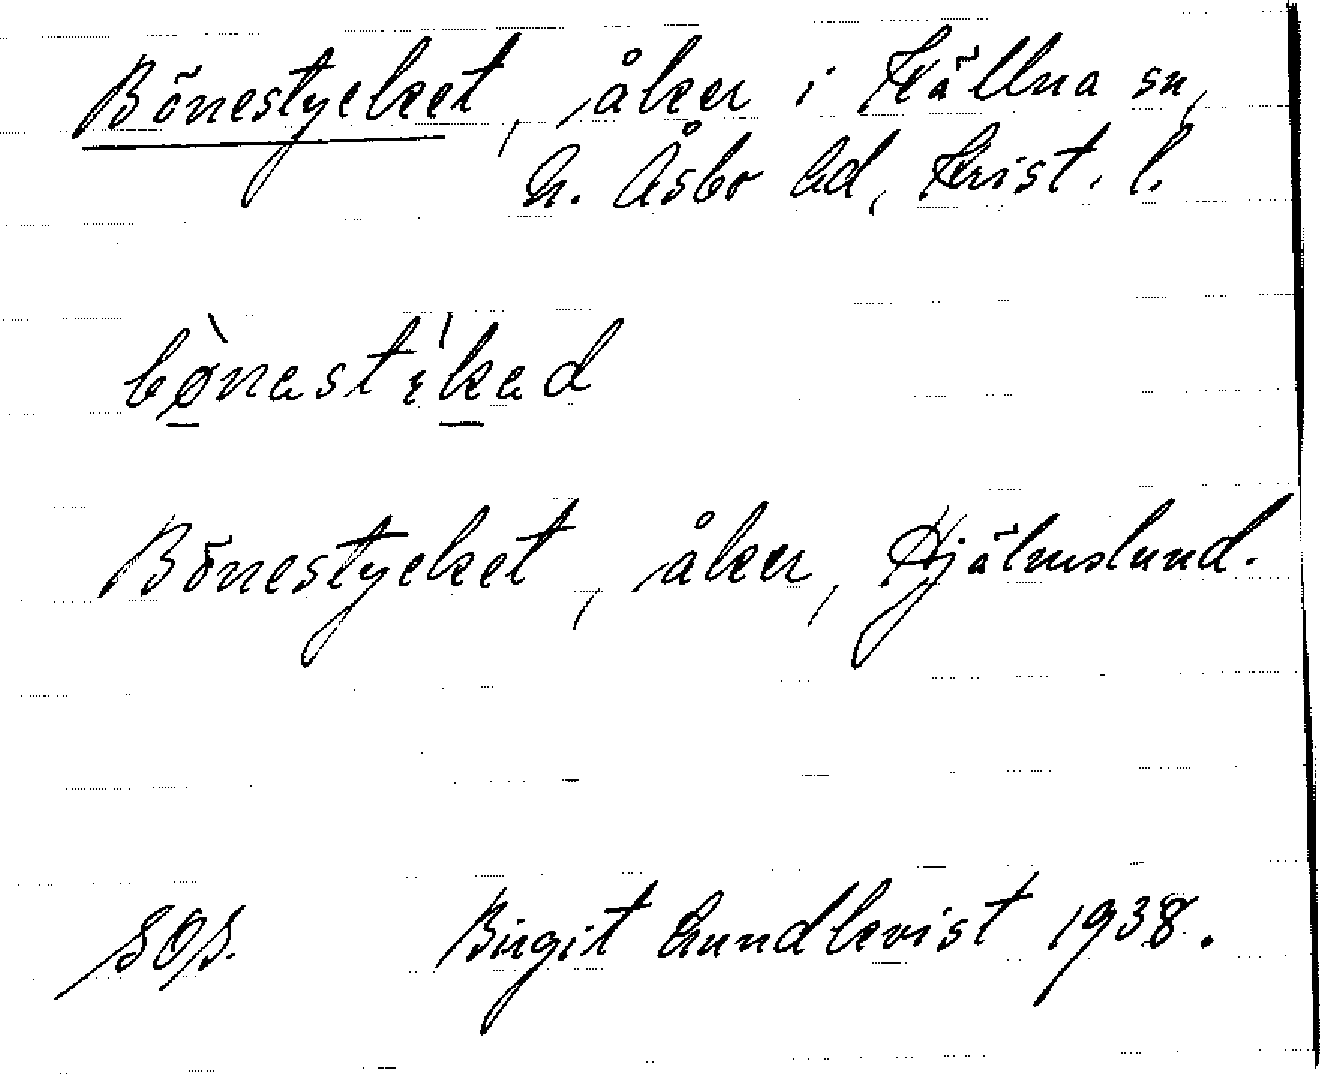 Bönestycket, åker i Källna sn,
N. Åsbo hd, Krist. l.
Bönestycket, åker, Hjälmslund.
SOS. Birgit Lundkvist 1938.